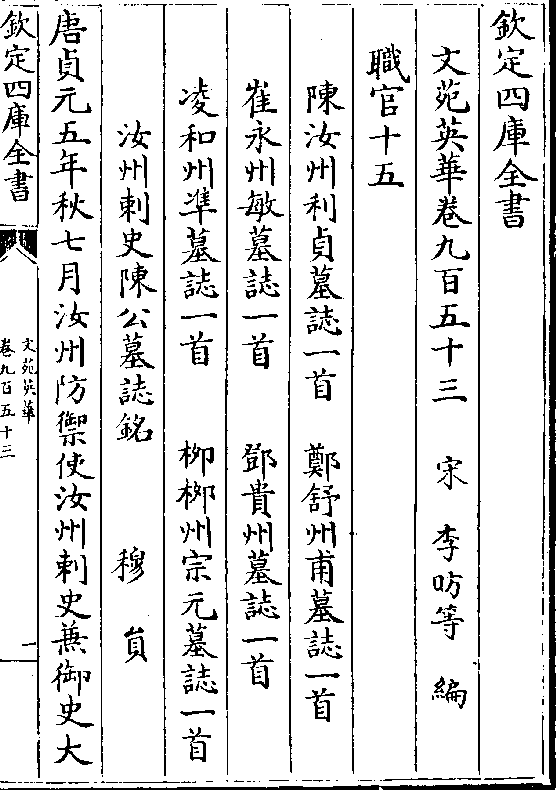 欽定四庫全書
文苑英華卷九百五十三　宋　李昉等　編
職官十五
陳汝州利貞墓誌一首　鄭舒州甫墓誌一首
崔永州敏墓誌一首　鄧貴州墓誌一首
凌和州凖墓誌一首　柳栁州宗元墓誌一首
汝州刺史陳公墓誌銘　穆　員
唐貞元五年秋七月汝州防禦使汝州刺史兼御史大
欽定四庫全書
文苑英華
卷九百五十三
一